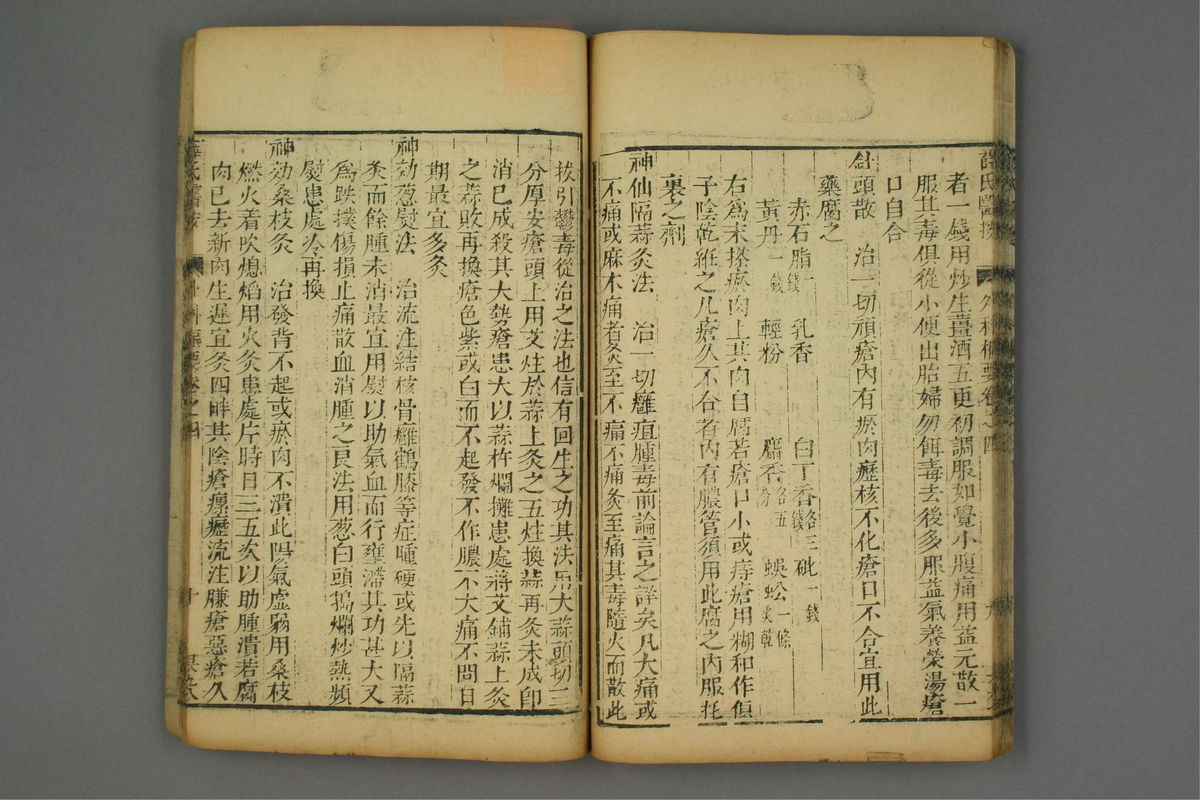 薛氏醫按 外科樞要卷之四
者一錢用炒生薑酒五更初調服如覺小腹痛用益元散一
服其毒俱從小便出胎婦勿餌毒去後多服益氣養榮湯瘡
口自合
針頭散 治一切頑瘡內有瘀肉瘰核不化瘡口不合宜用此
藥腐之
赤石脂一錢 乳香 白丁香各三錢 砒一錢
黃丹一錢 輕粉 麝香各五分 蜈蚣一條炙乾
右爲末搽瘀肉上其肉自腐若瘡口小或痔瘡用糊和作條
子陰乾維之凡瘡久不合者內有膿管須用此腐之內服托
裏之劑
神仙隔蒜灸法 治一切癰疽腫毒前論言之詳矣凡大痛或
不痛或麻木痛者灸至不痛不痛灸至痛其毒隨火而散此
拔引鬱毒從治之法也信有回生之功其法用大蒜頭切三
分厚安瘡頭上用艾炷於蒜上灸之五炷換蒜再灸未成卽
消已成殺其大勢瘡患大以蒜杵爛攤患處將艾鋪蒜上灸
之蒜敗再換瘡色紫或白而不起發不作膿不大痛不問日
期最宜多灸
神効葱熨法 治流注結核骨癰鶴膝等症腫硬或先以隔蒜
灸而餘腫未消最宜用熨以助氣血而行壅滯其功甚大又
爲跌撲傷損止痛散血消腫之良法用葱白頭搗爛炒熱頻
熨患處冷再換
神効桑枝灸 治發背不起或瘀肉不潰此陽氣虛弱用桑枝
燃火着吹熄焰用火灸患處片時日三五次以助腫潰若腐
肉已去新肉生遲宜灸四畔其陰瘡瘰癧流注臁瘡惡瘡久
外科樞要卷之四 十